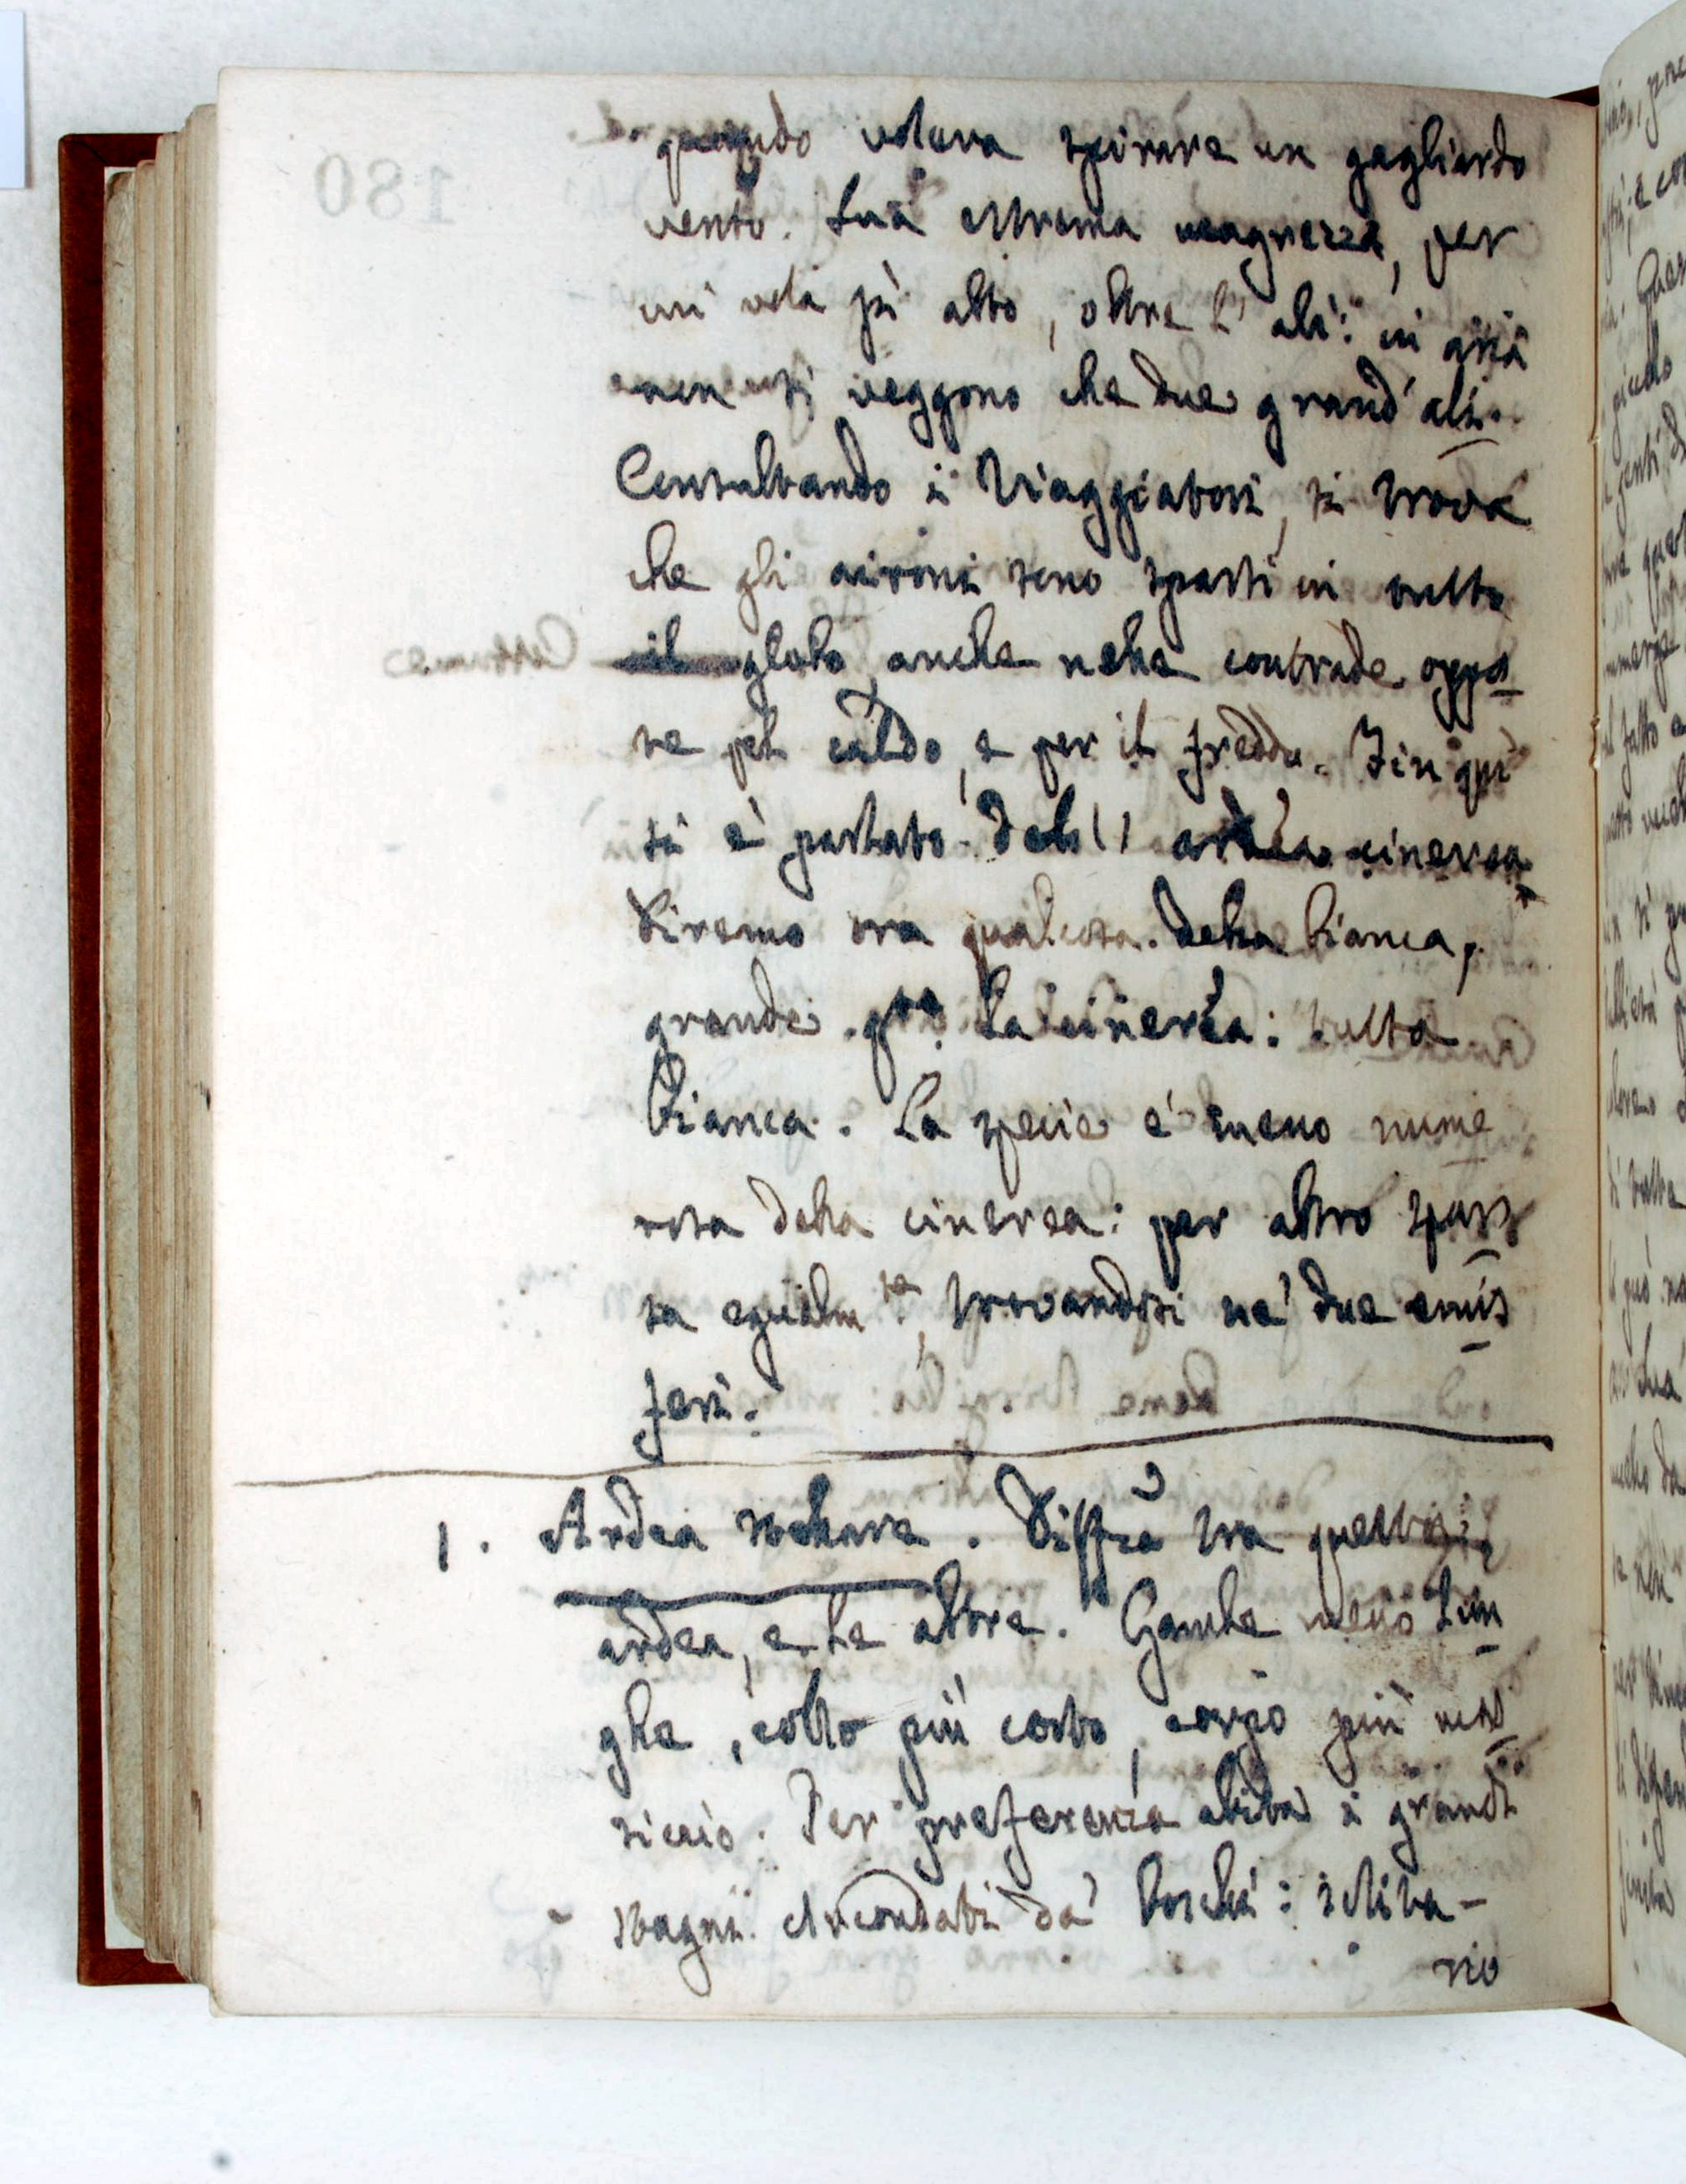 quando voleva spirare un gagliardo
vento. Sua estrema magrezza, per
cui vola pi alto, oltre l' ali: in aria
non si veggono che due grand' ali.
Consultando i Viaggiatori, si trova
che gli aironi sono sparsi in tutto
il globo, anche nelle contrade oppos
te pel caldo, e per il freddo. Fin qui
si è parlato dell' ardea cinerea
Diremo ora qualcosa della bianca,
grande qto la cinerea: tutta
bianca. La specie è meno nume
rosa della cinerea: per altro spar
sa egualmte, trovandosi ne' due emis
feri.
1. Ardea stellare. Diffza tra questa
ardea, e le altre. Gambe meno lun
ghe, collo più corto, corpo più mas
siccio. Per preferenza abita i grandi
stagni circondati da' boschi: solita-
rio
180